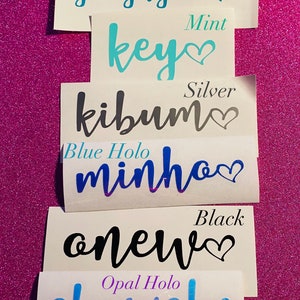 Mint
key♡
Silver
kibum♡
Blue Holo
minho♡
Black
onew♡
Opal Holo